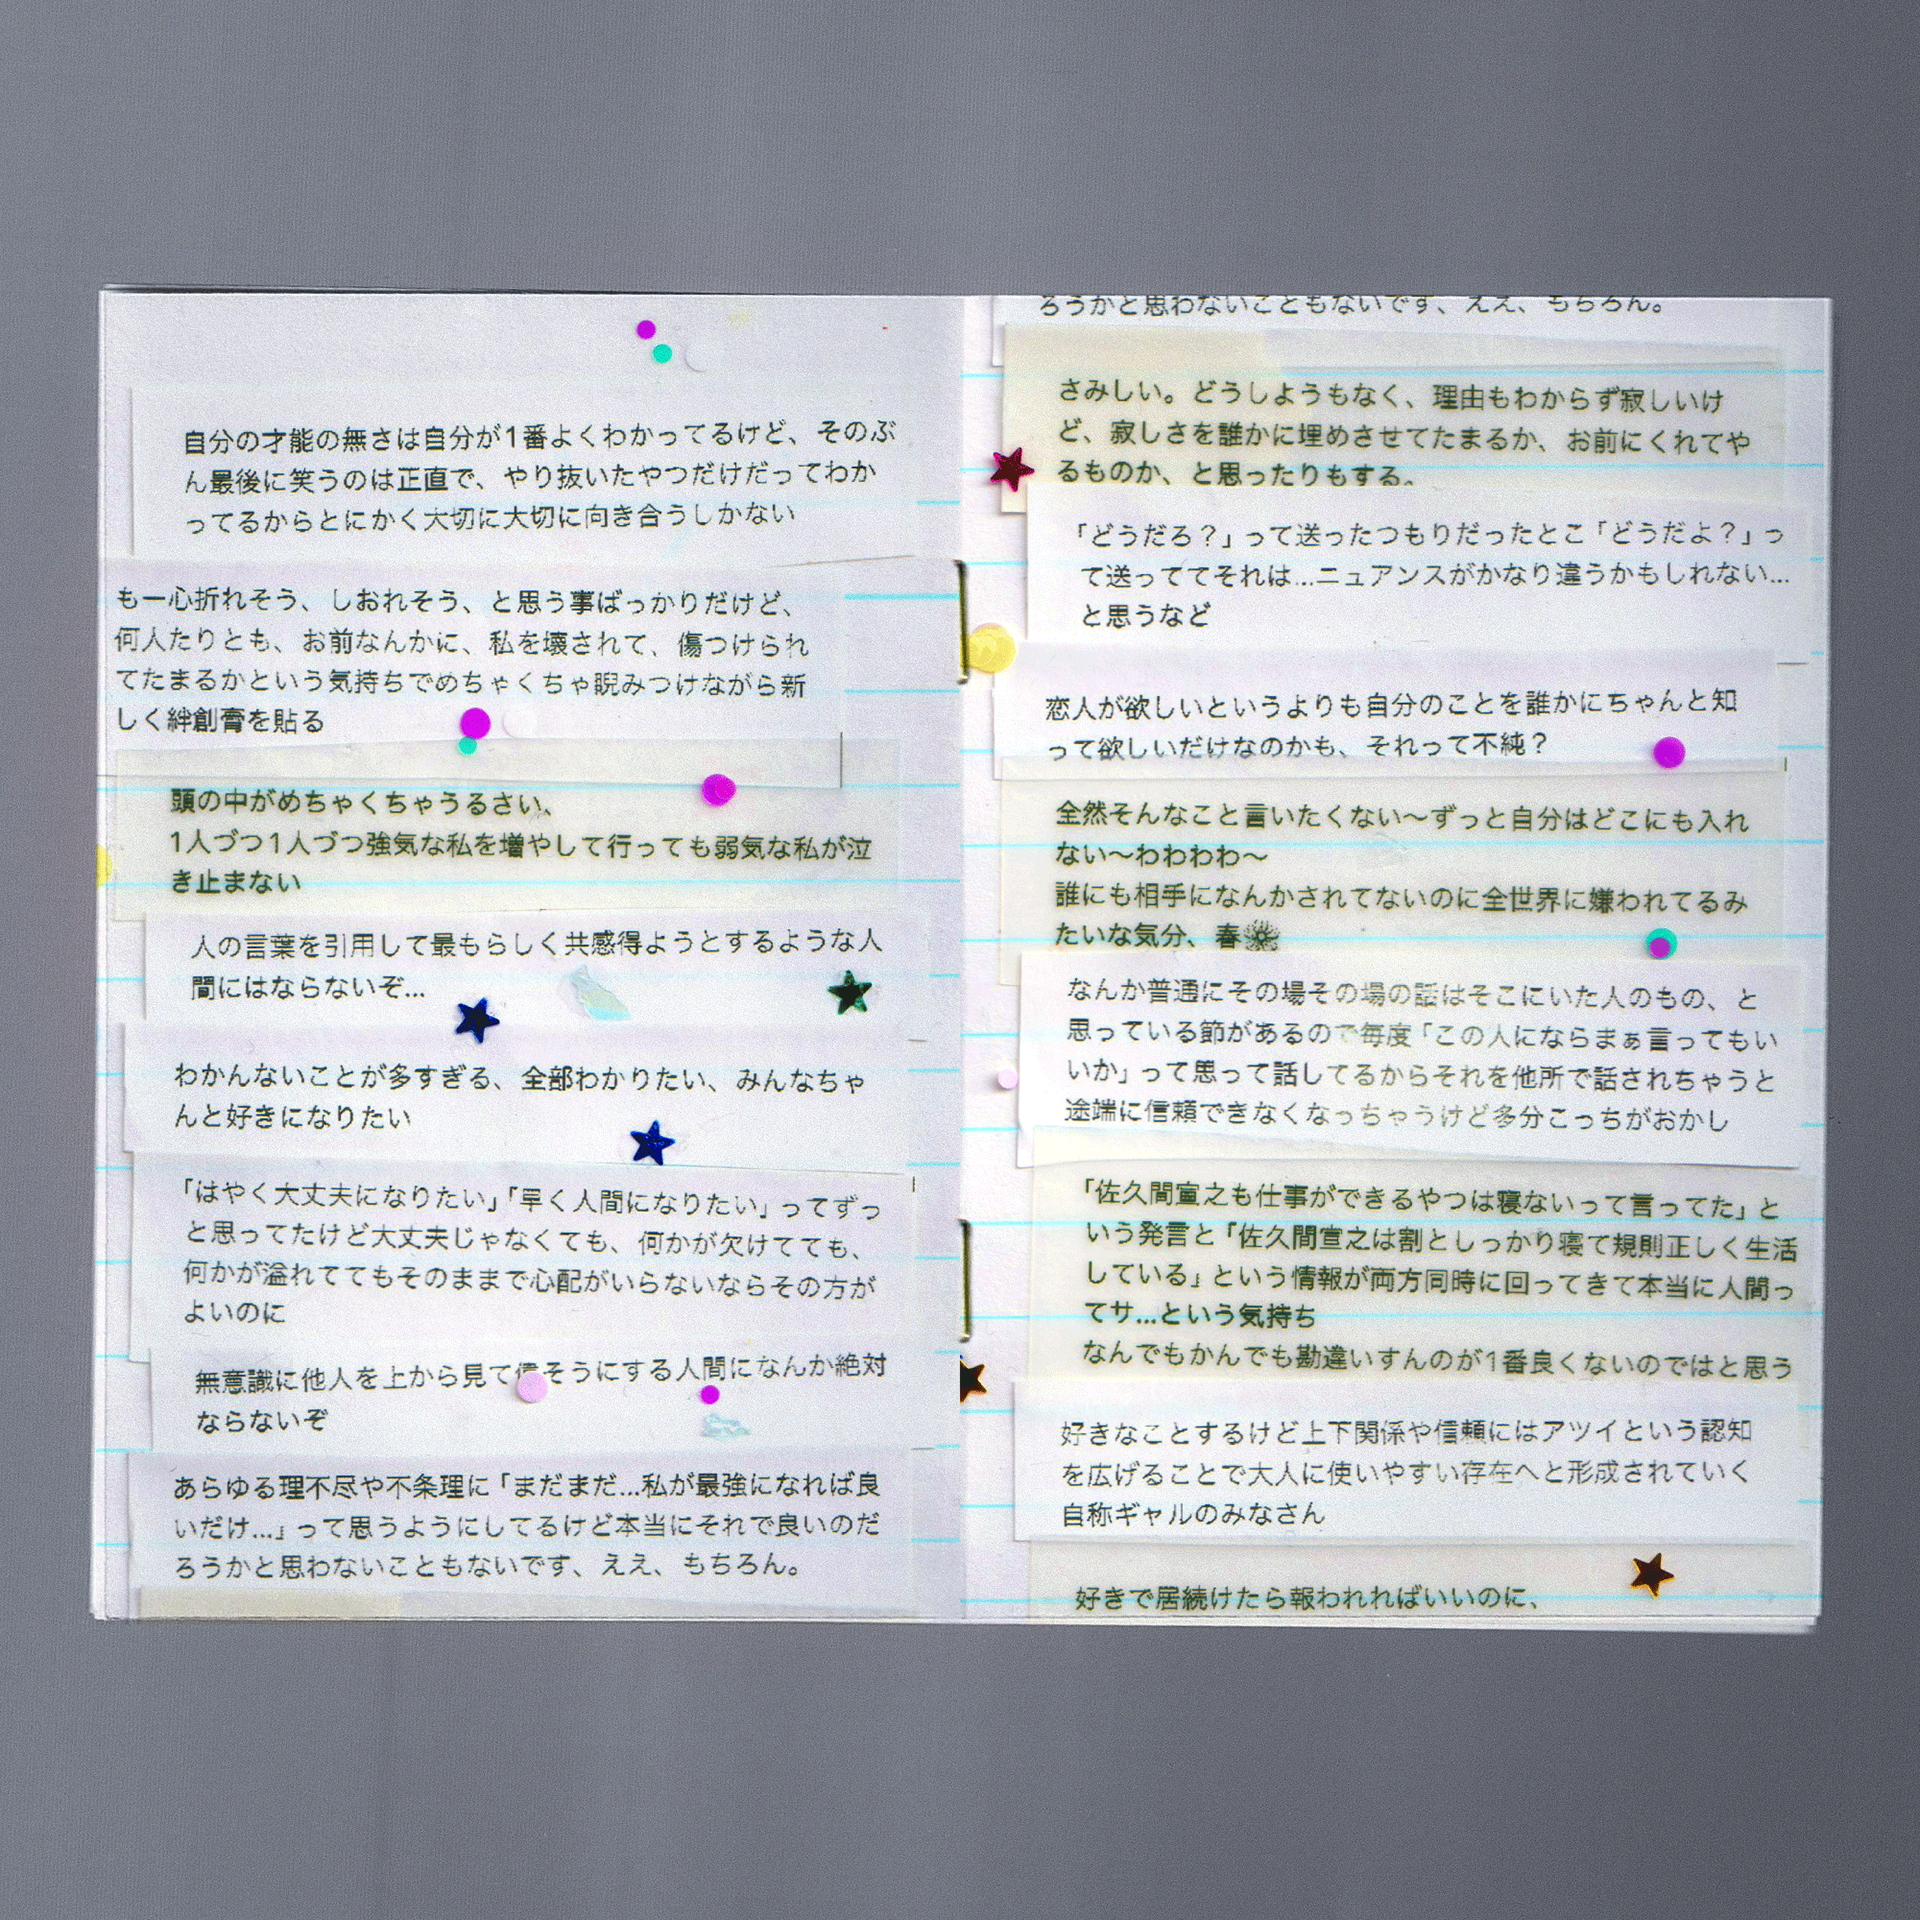 自分の才能の無さは自分が1番よくわかってるけど、そのぶ
ん最後に笑うのは正直で、やり抜いたやつだけだってわか
ってるからとにかく大切に大切に向き合うしかない
も一心折れそう、しおれそう、と思う事ばっかりだけど、
何人たりとも、お前なんかに、私を壊されて、傷つけられ
てたまるかという気持ちでめちゃくちゃ睨みつけながら新
しく絆創膏を貼る
頭の中がめちゃくちゃうるさい、
1人づつ1人づつ強気な私を増やして行っても弱気な私が泣
き止まない
人の言葉を引用して最もらしく共感得ようとするような人
間にはならないぞ…
わかんないことが多すぎる、全部わかりたい、みんなちゃ
んと好きになりたい
「はやく大丈夫になりたい」「早く人間になりたい」ってずっ
と思ってたけど大丈夫じゃなくても、何かが欠けてても、
何かが溢れててもそのままで心配がいらないならその方が
よいのに
無意識に他人を上から見て偉そうにする人間になんか絶対
ならないぞ
あらゆる理不尽や不条理に「まだまだ…私が最強になれば良
いだけ…」って思うようにしてるけど本当にそれで良いのだ
ろうかと思わないこともないです、ええ、もちろん。
ろうかと思わないこともないです、ええ、もちろん。
さみしい。どうしようもなく、理由もわからず寂しいけ
ど、寂しさを誰かに埋めさせてたまるか、お前にくれてや
るものか、と思ったりもする。
「どうだろ？」って送ったつもりだったとこ「どうだよ？」っ
て送っててそれは…ニュアンスがかなり違うかもしれない…
と思うなど
恋人が欲しいというよりも自分のことを誰かにちゃんと知
って欲しいだけなのかも、それって不純？
全然そんなこと言いたくない〜ずっと自分はどこにも入れ
ない〜わわわわ〜
誰にも相手になんかされてないのに全世界に嫌われてるみ
たいな気分、春
なんか普通にその場その場の話はそこにいた人のもの、と
思っている節があるので毎度「この人にならまぁ言ってもい
いか」って思って話してるからそれを他所で話されちゃうと
途端に信頼できなくなっちゃうけど多分こっちがおかし
「佐久間宣之も仕事ができるやつは寝ないって言ってた」と
いう発言と「佐久間宣之は割としっかり寝て規則正しく生活
している」という情報が両方同時に回ってきて本当に人間っ
てサ…という気持ち
なんでもかんでも勘違いすんのが1番良くないのではと思う
好きなことするけど上下関係や信頼にはアツイという認知
を広げることで大人に使いやすい存在へと形成されていく
自称ギャルのみなさん
好きで居続けたら報われればいいのに、